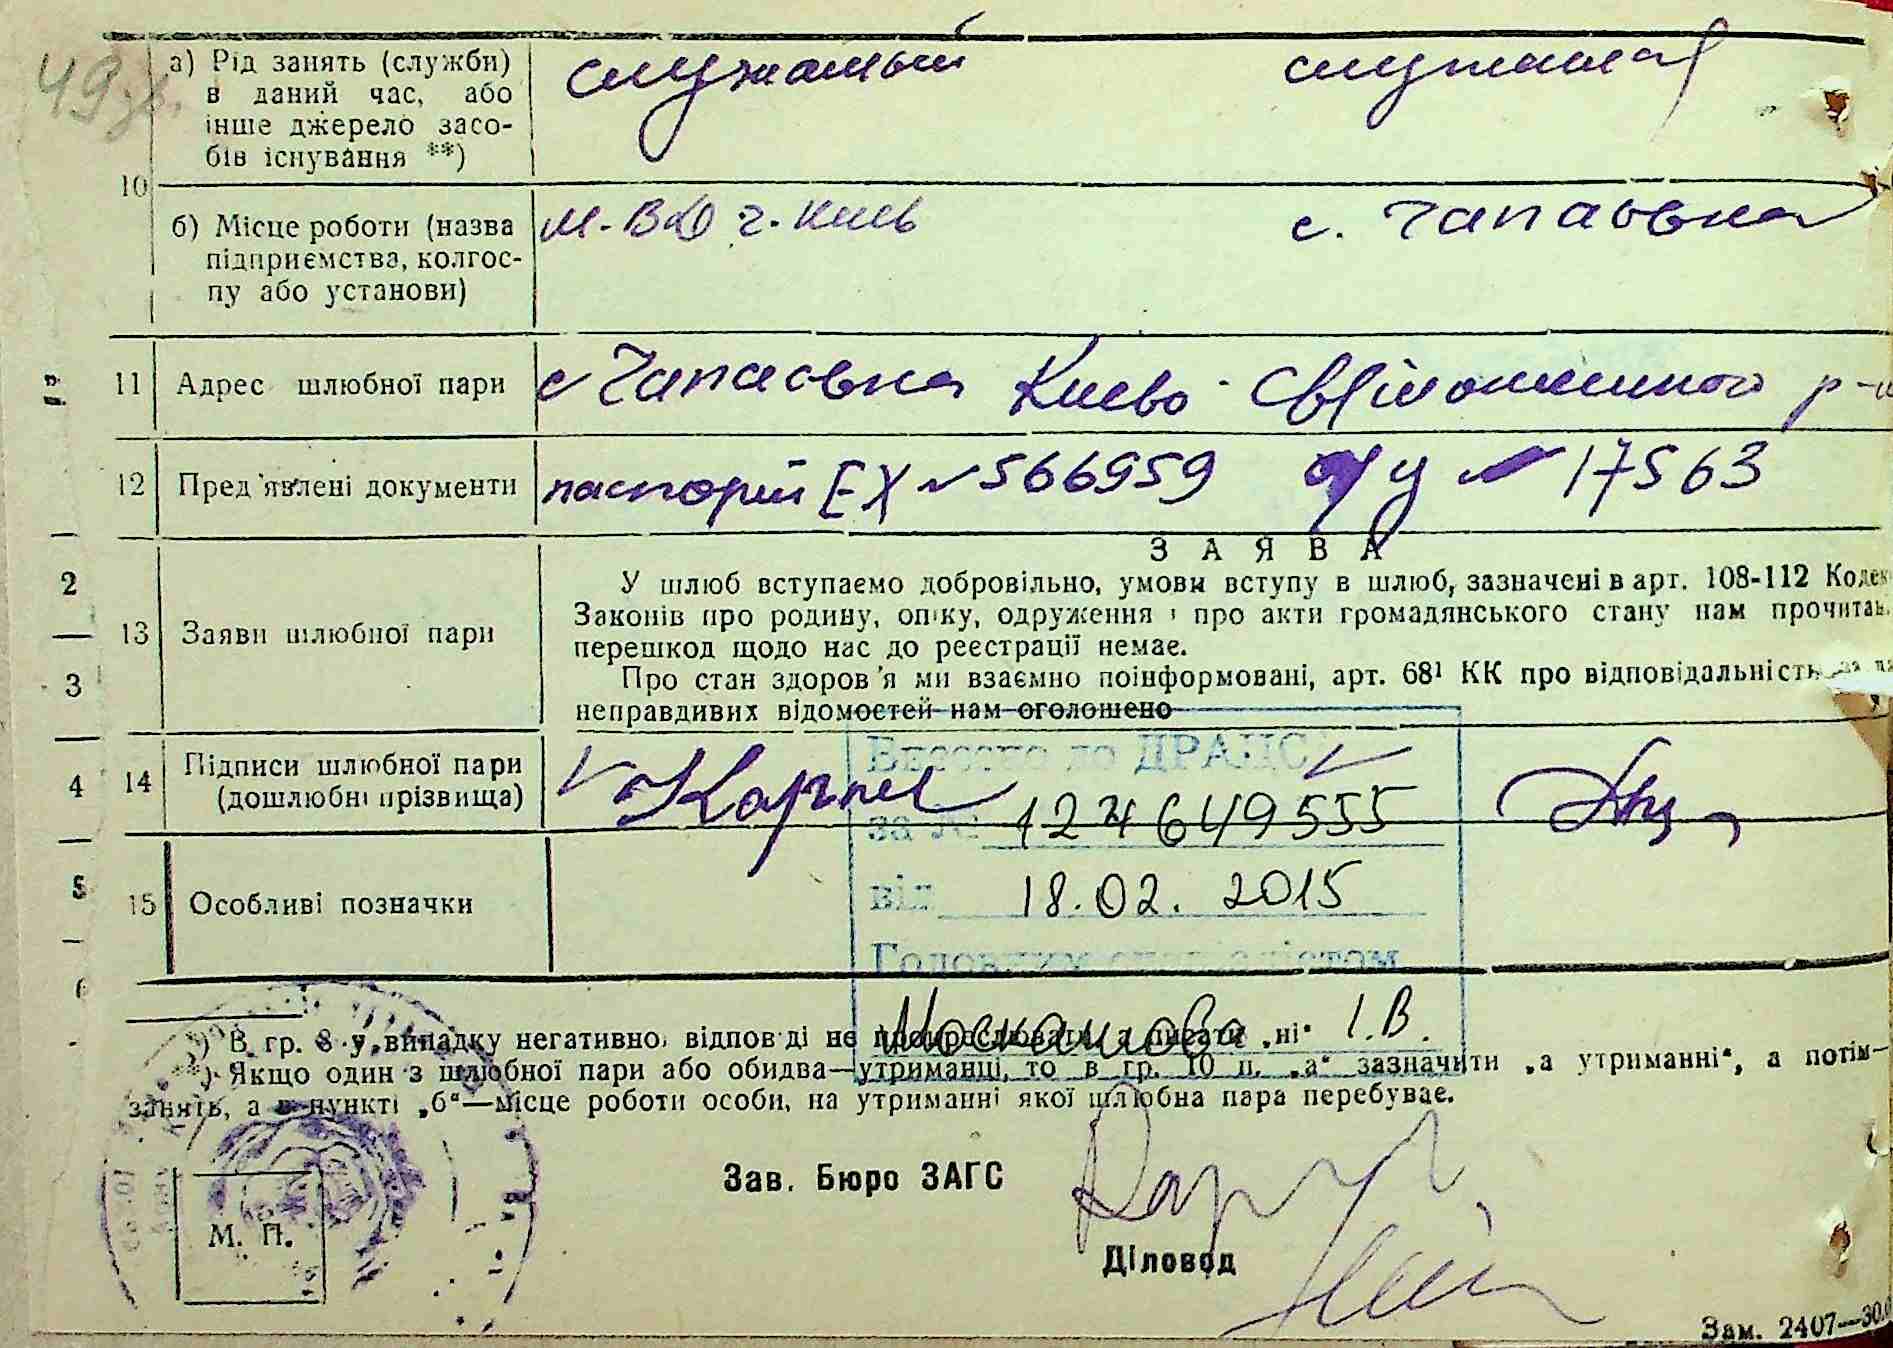 49 зв.
а) Рід занять (служби)
в даний час, або
інше джерело засо-
бів існування **)
служащий служащая
10
б) Місце роботи (назва
підприємства, колгос-
пу або установи)
М.ВД г. Киев с. Чапаевка
11 Адрес шлюбної пари с Чапаевка Киево-Святошинского р-н
12 Пред'явлені документи паспорт ЕХ № 566959 у № 17563
ЗАЯВА
2
13 Заяви шлюбної пари
У шлюб вступаємо добровільно, умови вступу в шлюб, зазначені в арт. 108-112 Кодек
Законів про родину, опіку, одруження і про акти громадянського стану нам прочитан
перешкод щодо нас до реєстрації немає.
3
Про стан здоров'я ми взаємно поінформовані, арт. 68¹ КК про відповідальність за
неправдивих відомостей нам оголошено
4 14 Підписи шлюбної пари
(дошлюбні прізвища)
Внесено до ДРАЦС
за № 124649555
5 15 Особливі позначки
від 18.02.2015
Головним спеціалістом
6
І.В.
*) В гр. 8 у випадку негативної відповіді не прокреслювати, а писати „ні“
**) Якщо один з шлюбної пари або обидва—утриманці, то в гр. 10 п. „а“ зазначити „а утриманні“, а потім—
занять, а в пункті „б“—місце роботи особи, на утриманні якої шлюбна пара перебуває.
Зав. Бюро ЗАГС
М. П.
Діловод
Зам. 2407—30.0